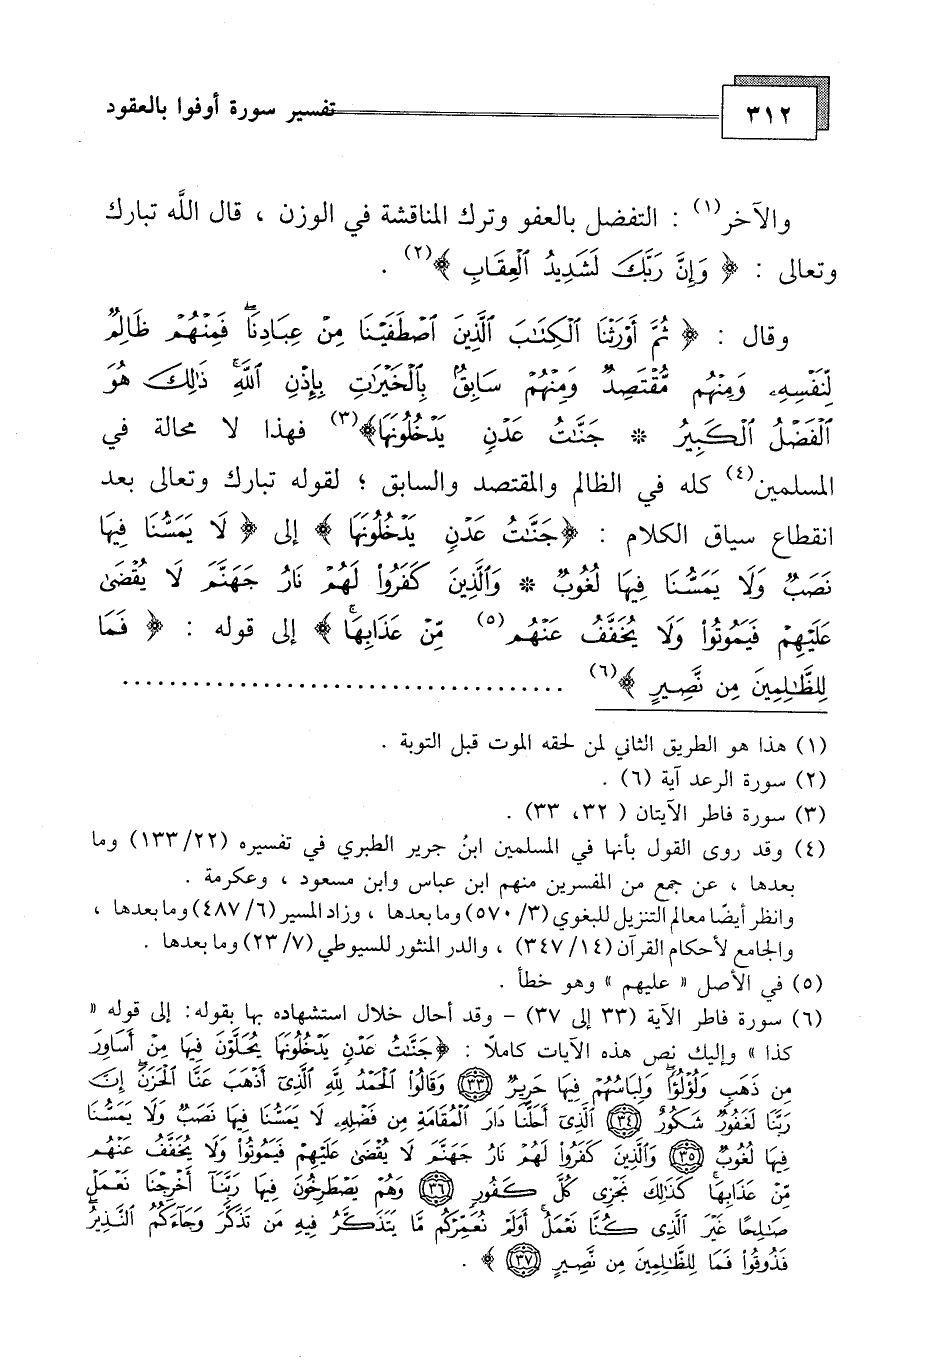 ٣١٢
تفسير سورة أوفوا بالعقود
والآخر(١) : التفضل بالعفو وترك المناقشة في الوزن ، قال اللَّه تبارك
وتعالى : ﴿ وَإِنَّ رَبَّكَ لَشَدِيدُ ٱلۡعِقَابِ ﴾(٢) .
وقال : ﴿ ثُمَّ أَوۡرَثۡنَا ٱلۡكِتَٰبَ ٱلَّذِينَ ٱصۡطَفَيۡنَا مِنۡ عِبَادِنَاۖ فَمِنۡهُمۡ ظَالِمٞ
لِّنَفۡسِهِۦ وَمِنۡهُم مُّقۡتَصِدٞ وَمِنۡهُمۡ سَابِقُۢ بِٱلۡخَيۡرَٰتِ بِإِذۡنِ ٱللَّهِۚ ذَٰلِكَ هُوَ
ٱلۡفَضۡلُ ٱلۡكَبِيرُ * جَنَّٰتُ عَدۡنٖ يَدۡخُلُونَهَا﴾(٣) فهذا لا محالة في
المسلمين(٤) كله في الظالم والمقتصد والسابق ؛ لقوله تبارك وتعالى بعد
انقطاع سياق الكلام : ﴿جَنَّٰتُ عَدۡنٖ يَدۡخُلُونَهَا ﴾ إلى ﴿ لَا يَمَسُّنَا فِيهَا
نَصَبٞ وَلَا يَمَسُّنَا فِيهَا لُغُوبٞ * وَٱلَّذِينَ كَفَرُواْ لَهُمۡ نَارُ جَهَنَّمَ لَا يُقۡضَىٰ
عَلَيۡهِمۡ فَيَمُوتُواْ وَلَا يُخَفَّفُ عَنۡهُم(٥) مِّنۡ عَذَابِهَاۚ ﴾ إلى قوله : ﴿ فَمَا
لِلظَّٰلِمِينَ مِن نَّصِيرٍ ﴾(٦) .....................................
(١) هذا هو الطريق الثاني لمن لحقه الموت قبل التوبة .
(٢) سورة الرعد آية (٦) .
(٣) سورة فاطر الآيتان ( ٣٢، ٣٣) .
(٤) وقد روى القول بأنها في المسلمين ابنُ جرير الطبري في تفسيره (١٣٣/٢٢) وما
بعدها ، عن جمع من المفسرين منهم ابن عباس وابن مسعود ، وعكرمة .
وانظر أيضًا معالم التنزيل للبغوي (٥٧٠/٣) وما بعدها ، وزاد المسير (٤٨٧/٦) وما بعدها ،
والجامع لأحكام القرآن (٣٤٧/١٤) ، والدر المنثور للسيوطي (٢٣/٧) وما بعدها .
(٥) في الأصل « عليهم » وهو خطأ .
(٦) سورة فاطر الآية (٣٣ إلى ٣٧) - وقد أحال خلال استشهاده بها بقوله: إلى قوله «
كذا » وإليك نص هذه الآيات كاملًا : ﴿جَنَّٰتُ عَدۡنٖ يَدۡخُلُونَهَا يُحَلَّوۡنَ فِيهَا مِنۡ أَسَاوِرَ
مِن ذَهَبٖ وَلُؤۡلُؤٗاۖ وَلِبَاسُهُمۡ فِيهَا حَرِيرٞ ٣٣ وَقَالُواْ ٱلۡحَمۡدُ لِلَّهِ ٱلَّذِيٓ أَذۡهَبَ عَنَّا ٱلۡحَزَنَۖ إِنَّ
رَبَّنَا لَغَفُورٞ شَكُورٌ ٣٤ ٱلَّذِيٓ أَحَلَّنَا دَارَ ٱلۡمُقَامَةِ مِن فَضۡلِهِۦ لَا يَمَسُّنَا فِيهَا نَصَبٞ وَلَا يَمَسُّنَا
فِيهَا لُغُوبٞ ٣٥ وَٱلَّذِينَ كَفَرُواْ لَهُمۡ نَارُ جَهَنَّمَ لَا يُقۡضَىٰ عَلَيۡهِمۡ فَيَمُوتُواْ وَلَا يُخَفَّفُ عَنۡهُم
مِّنۡ عَذَابِهَاۚ كَذَٰلِكَ نَجۡزِي كُلَّ كَفُورٖ ٣٦ وَهُمۡ يَصۡطَرِخُونَ فِيهَا رَبَّنَآ أَخۡرِجۡنَا نَعۡمَلۡ
صَٰلِحًا غَيۡرَ ٱلَّذِي كُنَّا نَعۡمَلُۚ أَوَلَمۡ نُعَمِّرۡكُم مَّا يَتَذَكَّرُ فِيهِ مَن تَذَكَّرَ وَجَآءَكُمُ ٱلنَّذِيرُۖ
فَذُوقُواْ فَمَا لِلظَّٰلِمِينَ مِن نَّصِيرٍ ٣٧ ﴾ .